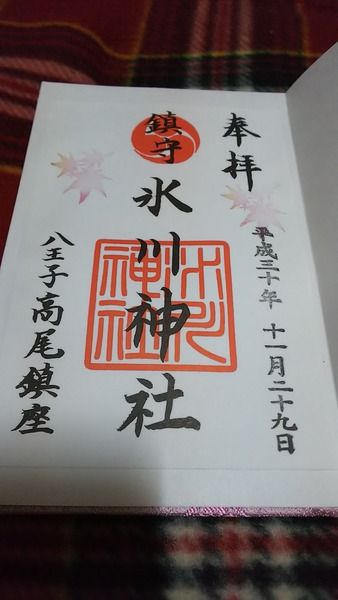 奉拝
平成三十年 十一月二十九日
鎮守
氷川神社
氷川神社
八王子高尾鎮座